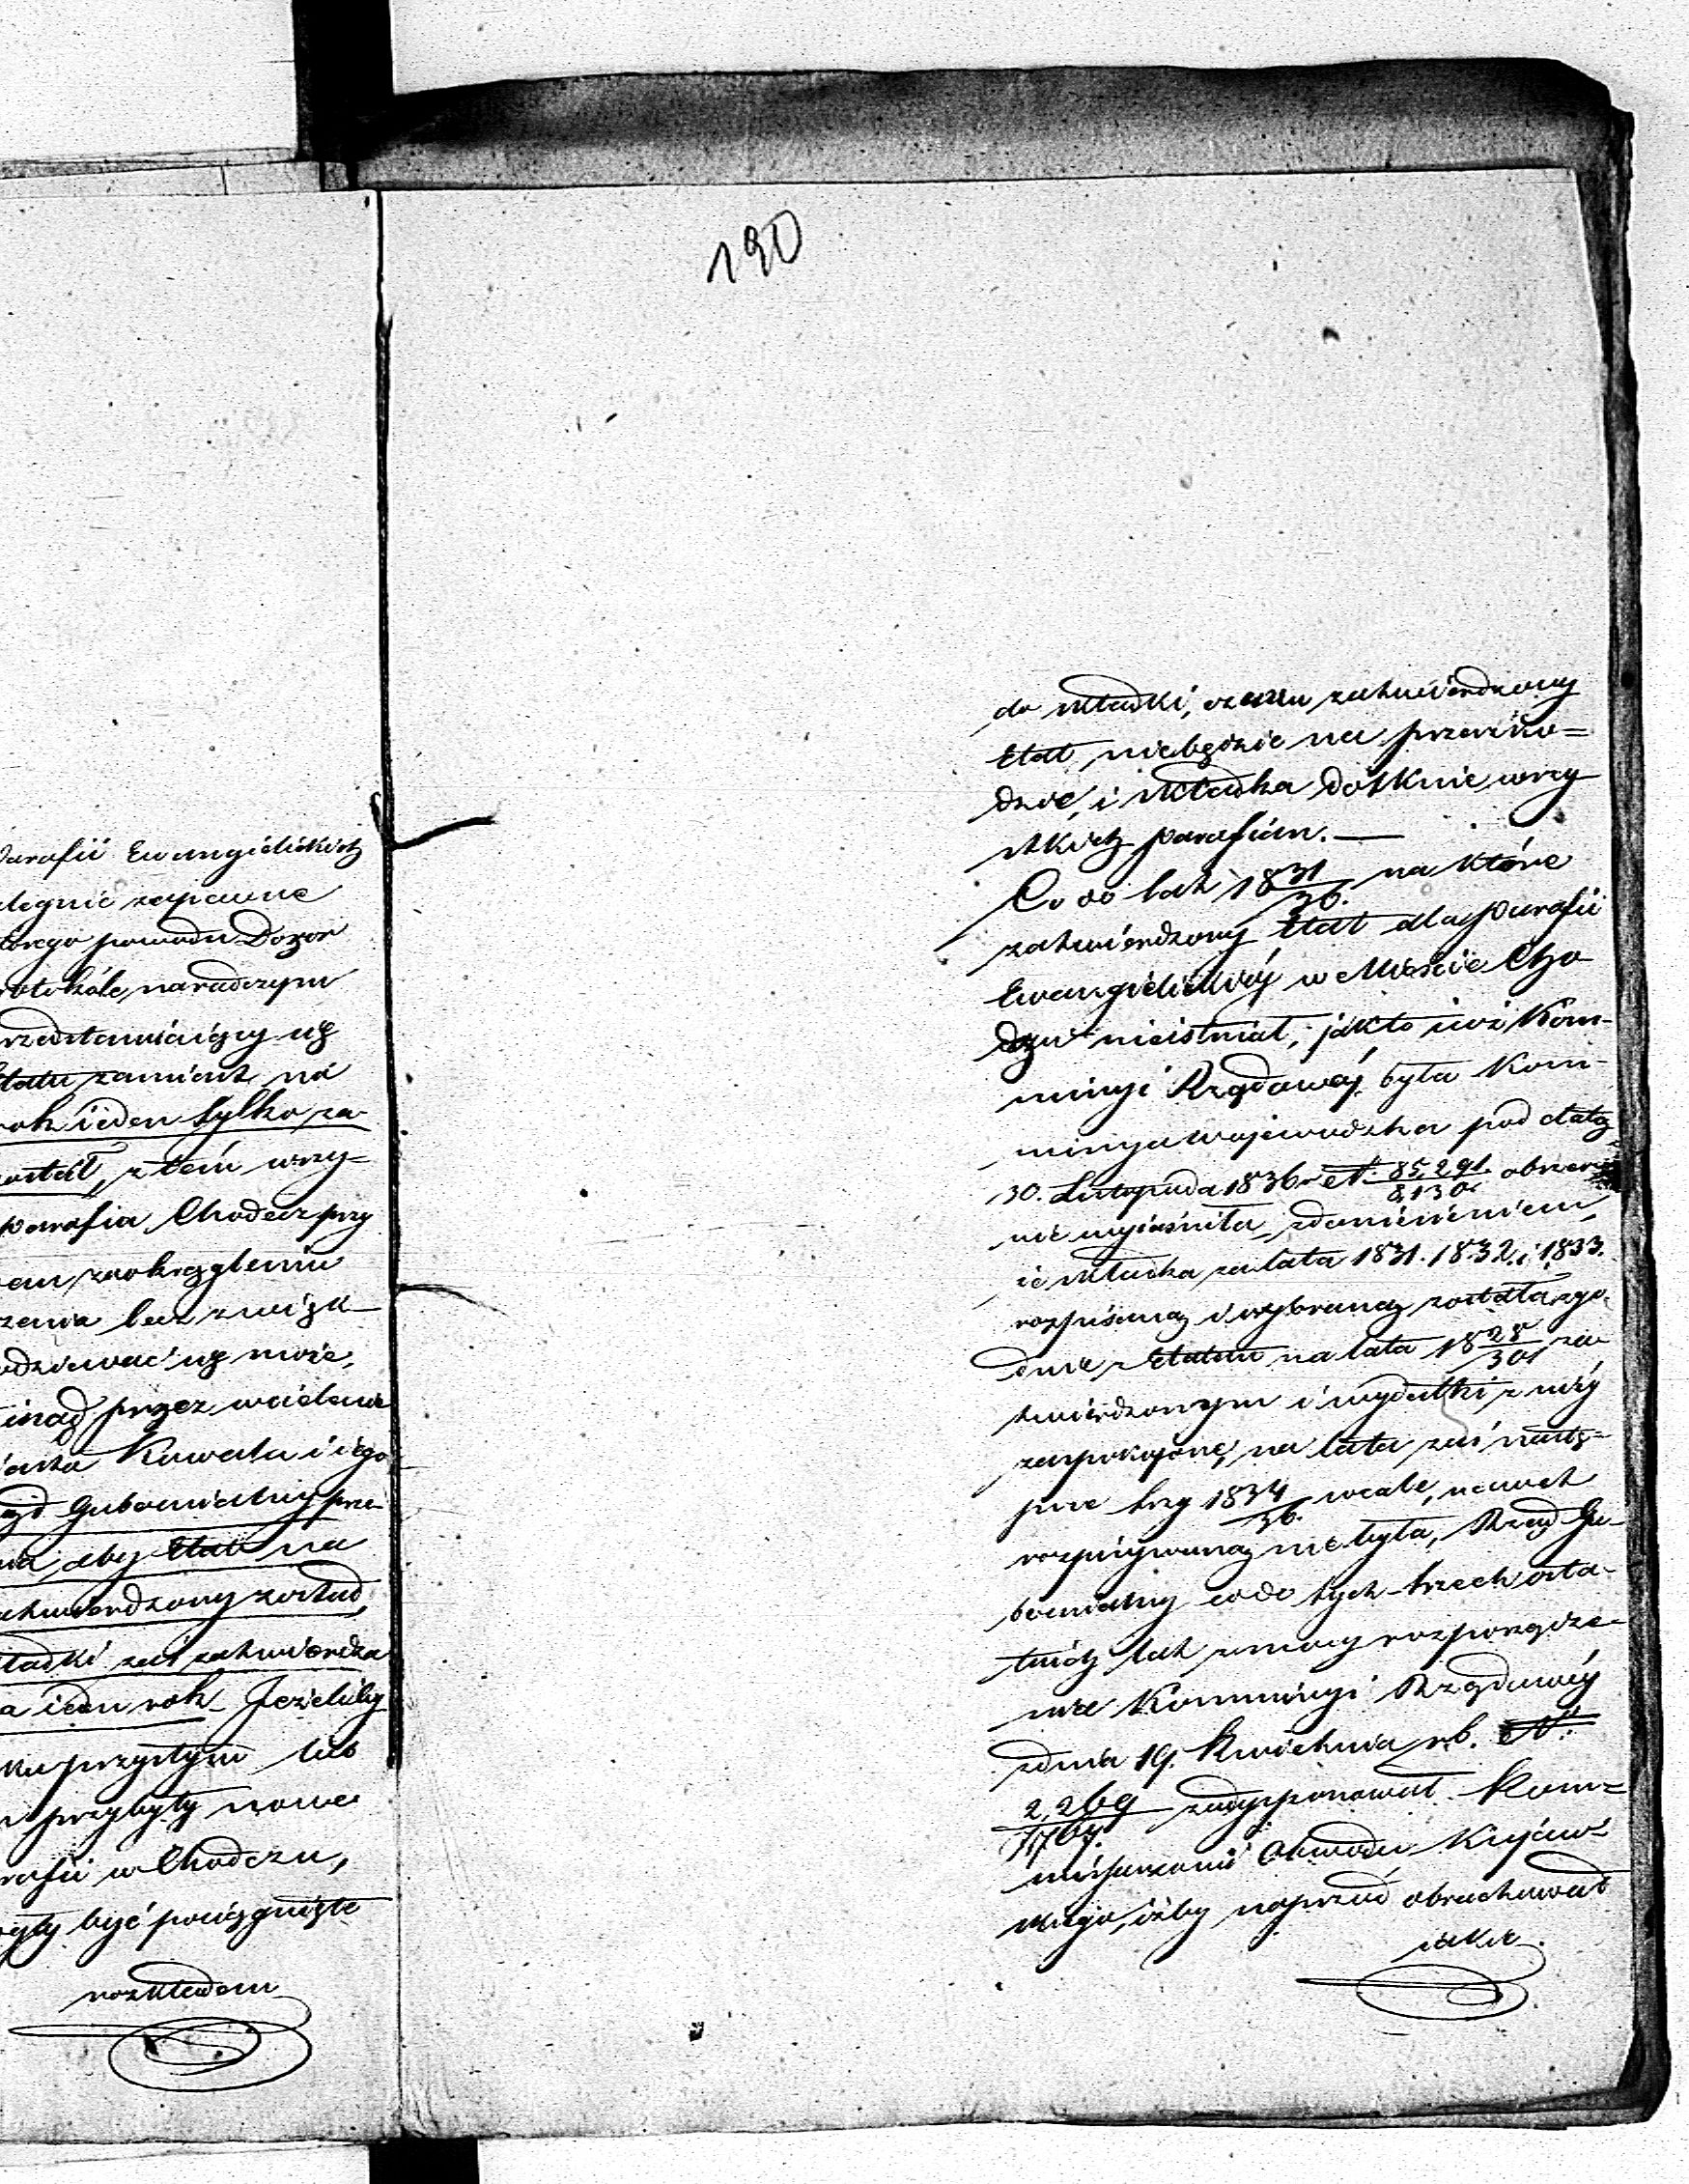 190
Parafii Ewangielickich
ulegnie zapewne
którego powodu Dozor
Protokóle naradczym
przedstawiaiący się
Etatu zamiast na
rok ieden tylko za-
został, z tem wszy-
parafia Chodecz przy
zaokrągleniu
bez związk
spodziewać się może,
inąd przez wcielenie
miasta Kowala i iego
Rząd Gubernialny prze-
aby Etat na
zatwierdzony został,
składki zaś zatwierdzał
na ieden rok. Jeżeliby
roku przyszłym lub
przybyły nowe
Parafii w Chodczu,
mogły być pociągnięte
rozkładem
do składki, czemu zatwierdzony
Etat niebędzie na przeszko=
dzie, i składka dotknie wszy
stkich parafian.—
Co do lat 1831/36. na które
zatwierdzony Etat dla Parafii
Ewangielickiéj w Mieście Cho
dczu nieistniał, jak to iuż Kom-
missyi Rządowéj była Kom-
missya Wojewodzka pod datą
30. Listopada 1836 r. N. 85,291/8,130. obszer
nie wyiaśniła, z doniesieniem,
iż składka za lata 1831. 1832. i 1833.
rozpisaną i wybraną została zgo-
dnie z Etatem na lata 1828/30 za
twierdzonym i wydatki z niéy
zaspokojone, na lata zaś nastę=
pne trzy 1834/36. wcale, nawet
rozpisywaną nie była, Rząd Gu-
bernialny co do tych trzech osta-
tnich lat z mocy rozporządze-
nia Kommissyi Rządowéy
z dnia 19. Kwietnia r. b. N.
2,269/1769. zadysponował Kom=
missarzowi Obwodu Kujaw-
skiego, iżby naprzód obrachował
iakie